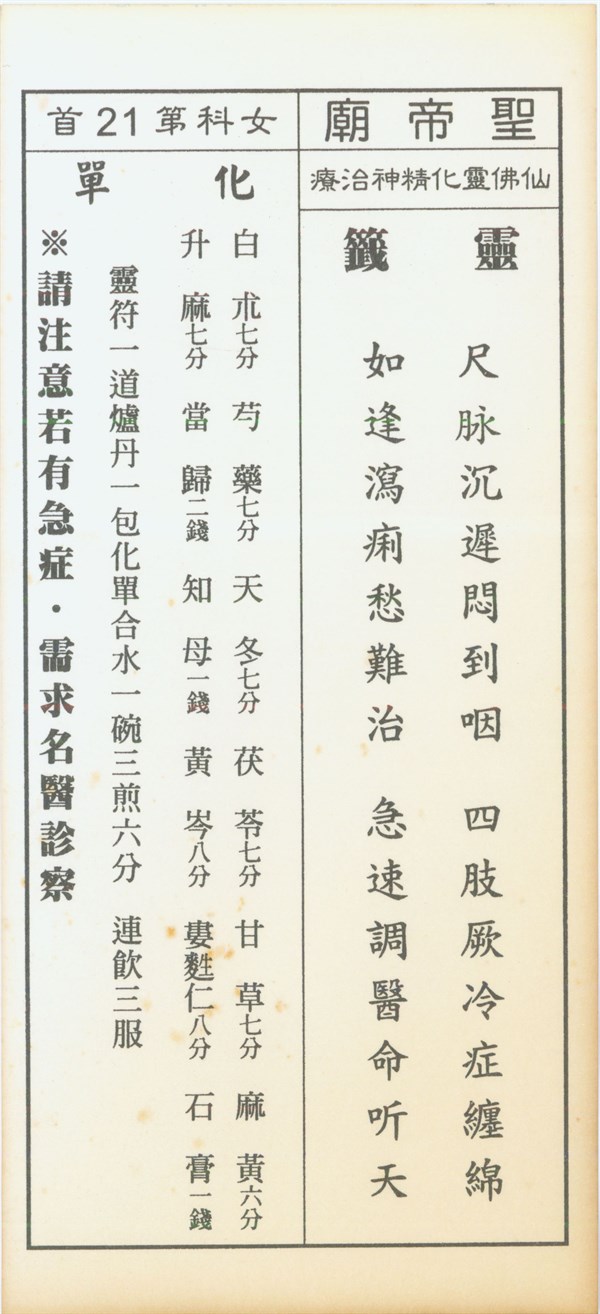 聖帝廟
仙佛靈化精神治療
靈籤
尺脉沉遲悶到咽 四肢厥冷症纏綿
如逢瀉痢愁難治 急速調醫命听天
女科第21首
化單
白朮七分 芍藥七分 天冬七分 茯苓七分 甘草七分 麻黃六分
升麻七分 當歸二錢 知母一錢 黃岑八分 婁甤仁八分 石膏一錢
靈符一道爐丹一包化單合水一碗三煎六分 連飲三服
※請注意若有急症・需求名醫診察